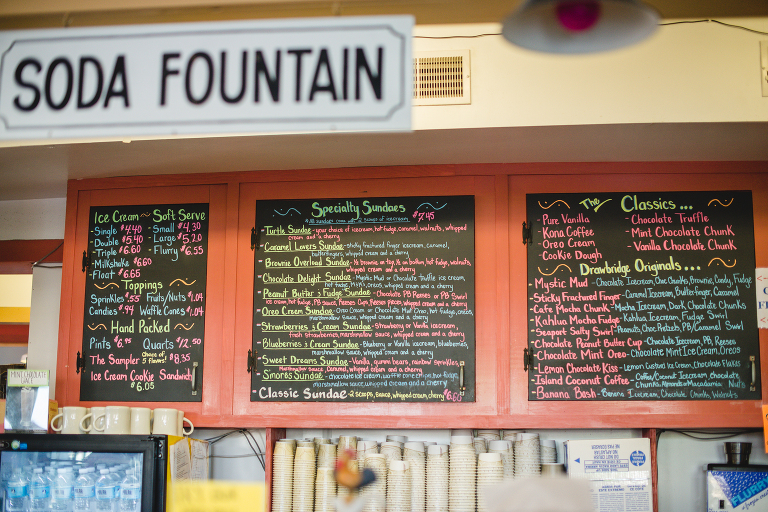 SODA FOUNTAIN
Ice Cream ~ Soft Serve
-Single $4.40 -Small $4.30
-Double $5.40 -Large $5.20
-Triple $6.60 -Flurry $6.55
-Milkshake $6.60
-Float $6.65
Toppings
Sprinkles $.55 Fruits/Nuts $1.04
Candies $.94 Waffle Cones $1.04
Hand Packed
Pints $6.95 Quarts $12.50
The Sampler Choice of 5 flavors! $8.35
Ice Cream Cookie Sandwich
$6.05
Specialty Sundaes
$7.45
Turtle Sundae-your choice of icecream, hot fudge, caramel, walnuts, whipped
cream and a cherry
Caramel Lovers Sundae-Sticky fractured finger icecream, caramel,
butterfingers, whipped cream and a cherry
Brownie Overload Sundae-
whipped cream and a cherry
Chocolate Delight Sundae-Mystic Mud or Chocolate truffle ice cream,
whipped cream and a cherry
Peanut Butter & Fudge Sundae-Chocolate PB Reeses or PB Swirl
ice cream, hot fudge, PB sauce, Reeses Cups, Reeses Pieces, whipped cream and a cherry
Oreo Cream Sundae-Oreo Cream or Chocolate Mud Oreo, hot fudge, oreos,
marshmallow sauce, whipped cream and a cherry
Strawberries & Cream Sundae-Strawberry or Vanilla icecream,
fresh strawberries, marshmallow sauce, whipped cream and a cherry
Blueberries & Cream Sundae-Blueberry or Vanilla icecream, blueberries,
marshmallow sauce, whipped cream and a cherry
Sweet Dreams Sundae-Vanilla, gummi bears, rainbow sprinkles,
Marshmallow Sauce, Caramel, whipped cream and a cherry
Smores Sundae-chocolate ice cream,
marshmallow sauce, whipped cream and a cherry
Classic Sundae-2 scoops, sauce, whipped cream, cherry $6.60
The Classics...
-Pure Vanilla -Chocolate Truffle
Kona Coffee -Mint Chocolate Chunk
Oreo Cream -Vanilla Chocolate Chunk
Cookie Dough
Drawbridge Originals...
Mystic Mud-Chocolate Icecream, Choc Chunks, Brownie, Candy, Fudge
Sticky Fractured Finger-Caramel Icecream, Butterfinger, Caramel
Cafe Mocha Chunk-Mocha Icecream, Dark Chocolate Chunks
Kahlua Mocha Fudge-Kahlua Icecream, Fudge Swirl
Seaport Salty Swirl-Peanuts, Choc Pretzels, PB/Caramel Swirl
Chocolate Peanut Butter Cup-Chocolate Icecream, PB, Reeses
Chocolate Mint Oreo-Chocolate Mint Ice Cream, Oreos
Lemon Chocolate Kiss-Lemon Custard Icecream, Chocolate Flakes
Island Coconut Coffee-Coffee/Coconut Icecream, Chocolate
Chunks, Almonds & Macadamia Nuts
Banana Bash-Banana Icecream, Chocolate Chunks, Walnuts